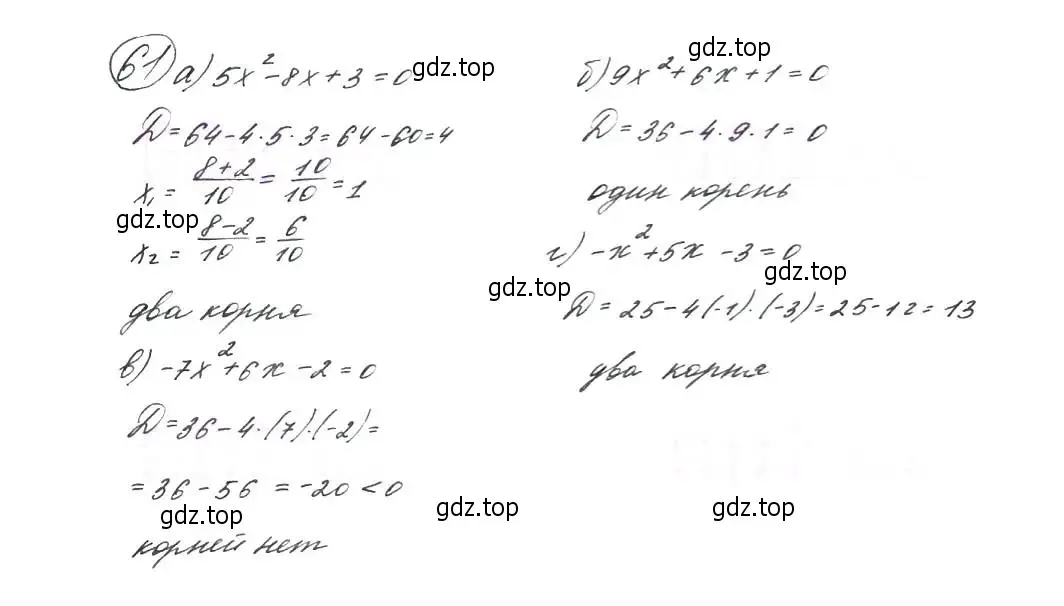 61 а) 5x² - 8x + 3 = 0 gdz.top
gdz.top
Д = 64 - 4·5·3 = 64 - 60 = 4
x₁ = (8+2)/10 = 10/10 = 1
gdz.top
x₂ = (8-2)/10 = 6/10
два корня
в) -7x² + 6x - 2 = 0
Д = 36 - 4·(7)·(-2) =
= 36 - 56 = -20 < 0
gdz.top
корней нет
б) 9x² + 6x + 1 = 0
Д = 36 - 4·9·1 = 0
один корень
г) -x² + 5x - 3 = 0
gdz.top
gdz.top
Д = 25 - 4(-1)·(-3) = 25 - 12 = 13
два корня
gdz.top
gdz.top